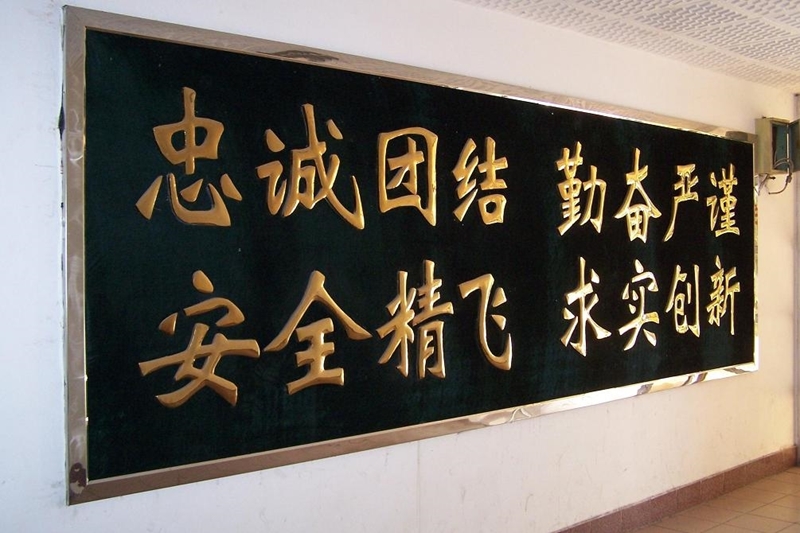 忠诚团结 勤奋严谨
安全精飞 求实创新